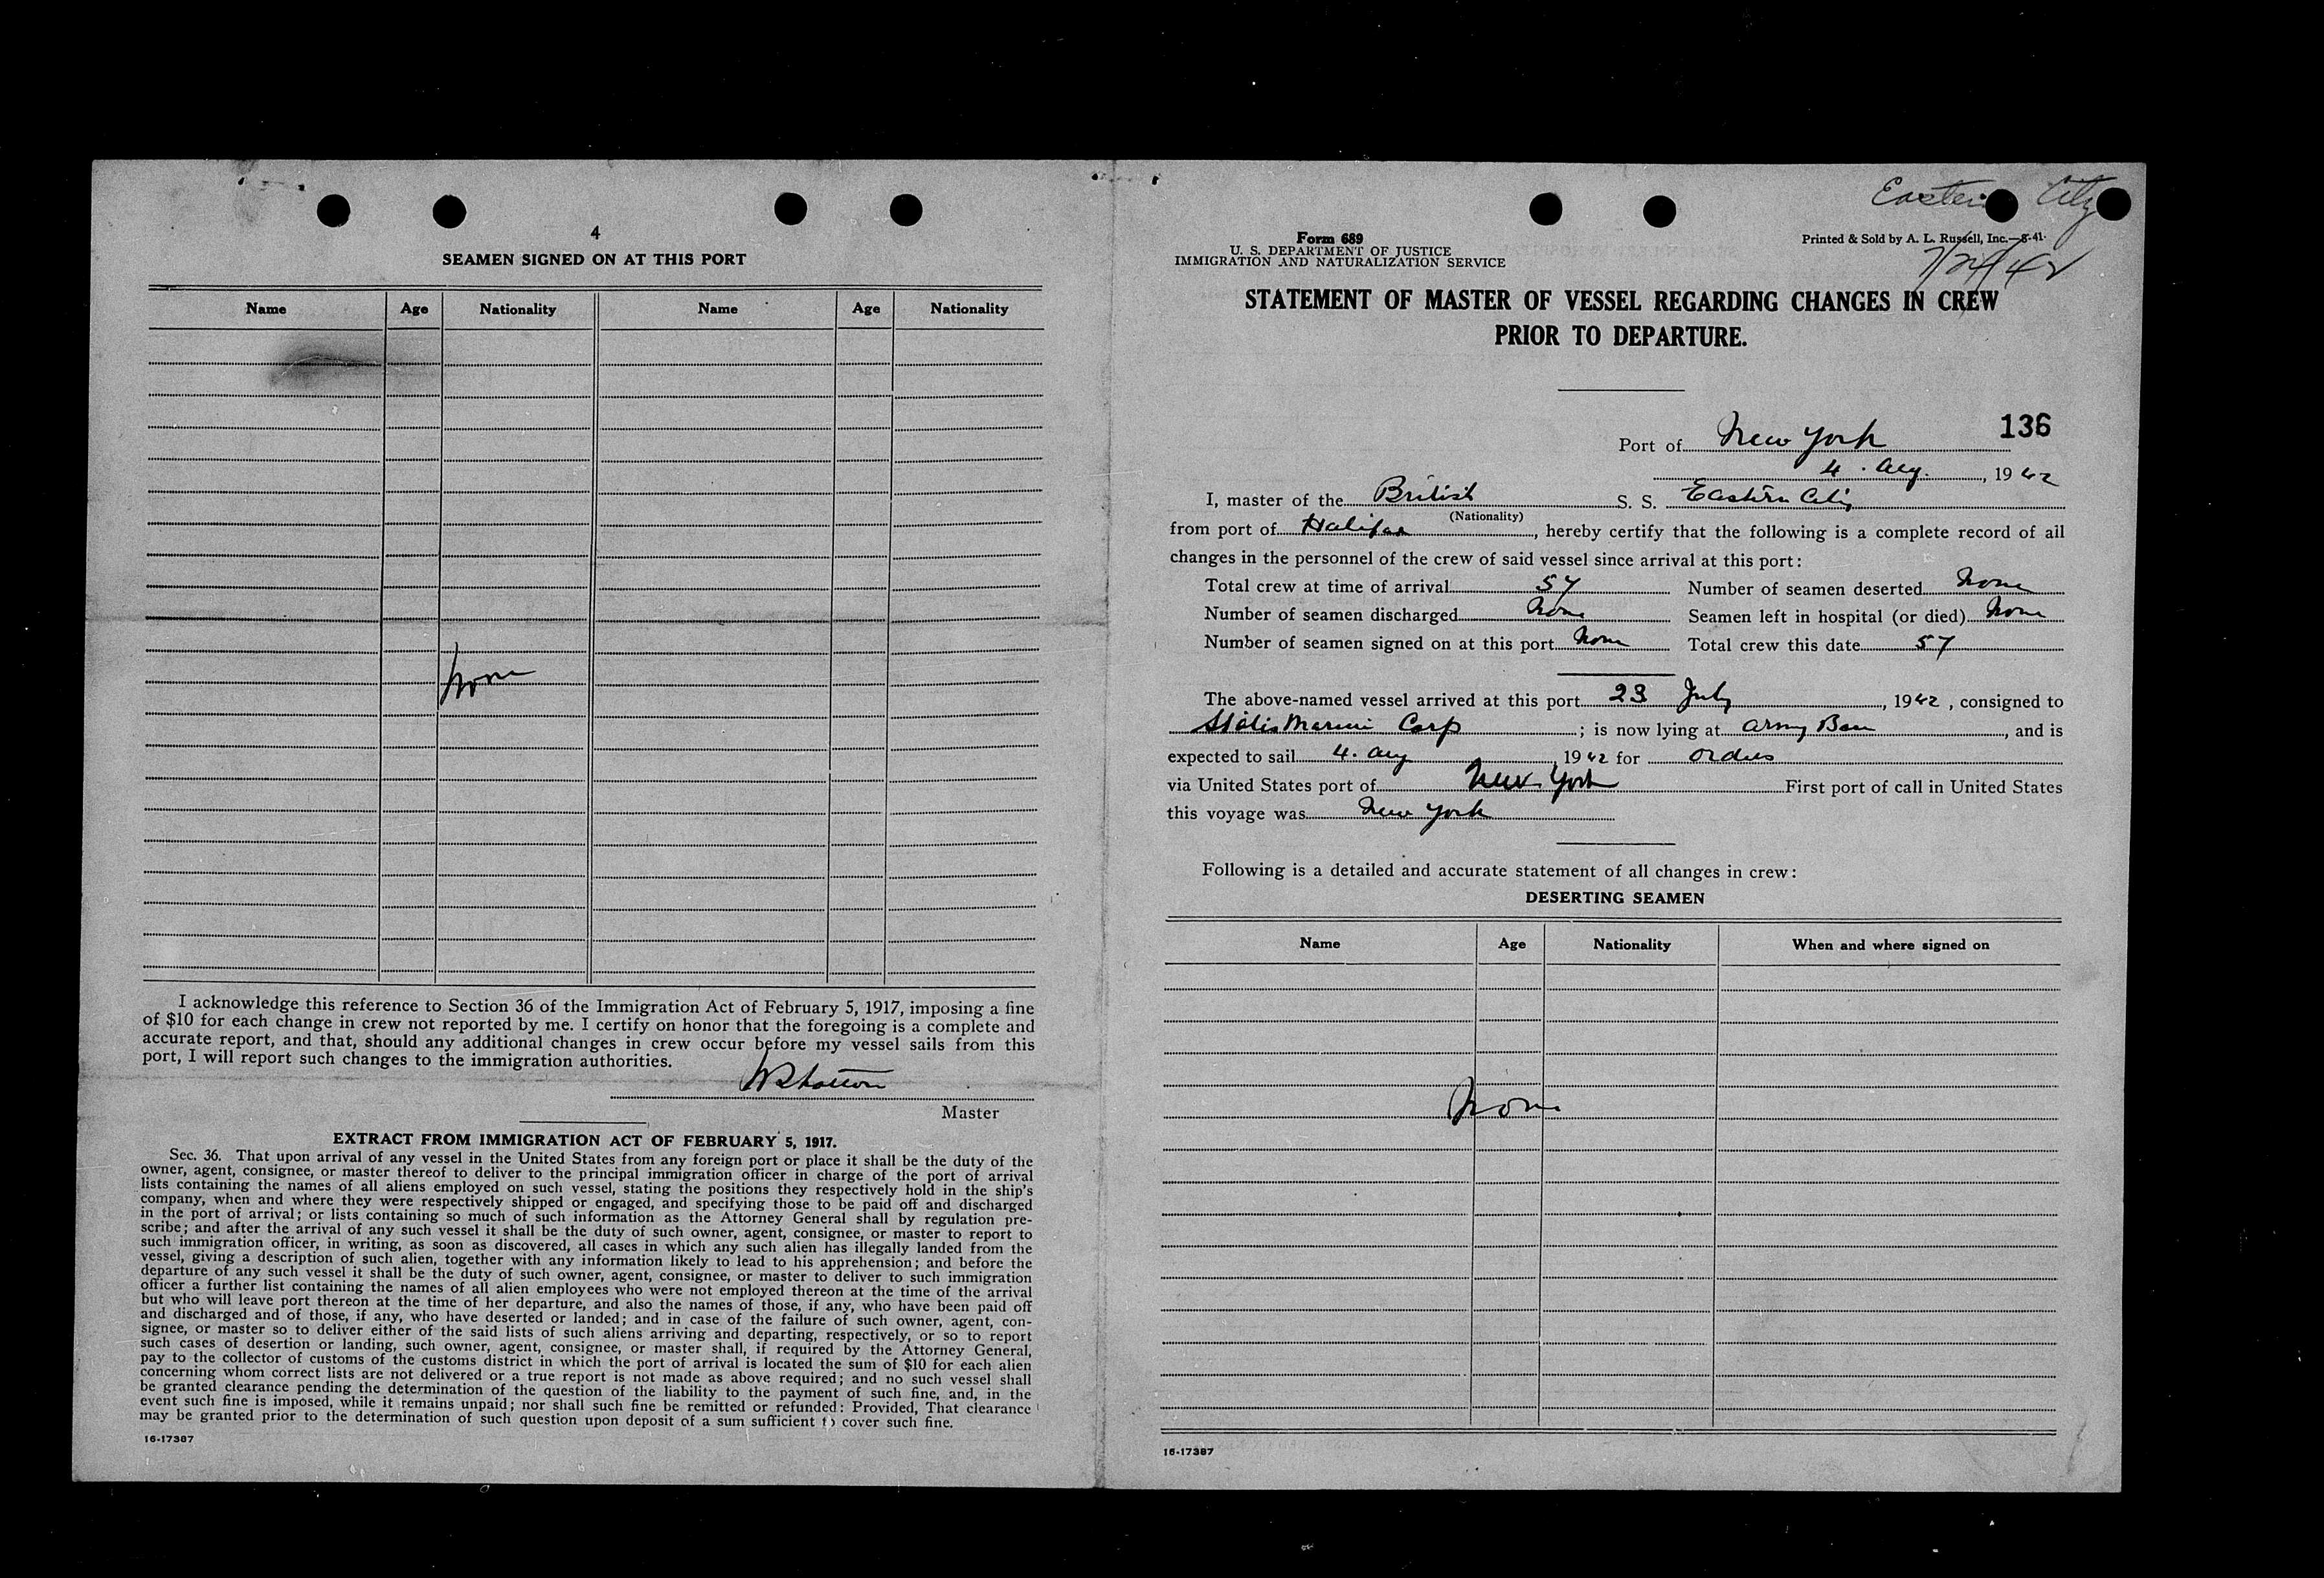 4
SEAMEN SIGNED ON AT THIS PORT
Name Age Nationality Name Age Nationality
None
I acknowledge this reference to Section 36 of the Immigration Act of February 5, 1917, imposing a fine
of $10 for each change in crew not reported by me. I certify on honor that the foregoing is a complete and
accurate report, and that, should any additional changes in crew occur before my vessel sails from this
port, I will report such changes to the immigration authorities.
Master
EXTRACT FROM IMMIGRATION ACT OF FEBRUARY 5, 1917.
Sec. 36. That upon arrival of any vessel in the United States from any foreign port or place it shall be the duty of the
owner, agent, consignee, or master thereof to deliver to the principal immigration officer in charge of the port of arrival
lists containing the names of all aliens employed on such vessel, stating the positions they respectively hold in the ship's
company, when and where they were respectively shipped or engaged, and specifying those to be paid off and discharged
in the port of arrival; or lists containing so much of such information as the Attorney General shall by regulation pre-
scribe; and after the arrival of any such vessel it shall be the duty of such owner, agent, consignee, or master to report to
such immigration officer, in writing, as soon as discovered, all cases in which any such alien has illegally landed from the
vessel, giving a description of such alien, together with any information likely to lead to his apprehension; and before the
departure of any such vessel it shall be the duty of such owner, agent, consignee, or master to deliver to such immigration
officer a further list containing the names of all alien employees who were not employed thereon at the time of the arrival
but who will leave port thereon at the time of her departure, and also the names of those, if any, who have been paid off
and discharged and of those, if any, who have deserted or landed; and in case of the failure of such owner, agent, con-
signee, or master so to deliver either of the said lists of such aliens arriving and departing, respectively, or so to report
such cases of desertion or landing, such owner, agent, consignee, or master shall, if required by the Attorney General,
pay to the collector of customs of the customs district in which the port of arrival is located the sum of $10 for each alien
concerning whom correct lists are not delivered or a true report is not made as above required; and no such vessel shall
be granted clearance pending the determination of the question of the liability to the payment of such fine, and, in the
event such fine is imposed, while it remains unpaid; nor shall such fine be remitted or refunded: Provided, That clearance
may be granted prior to the determination of such question upon deposit of a sum sufficient to cover such fine.
16-17387
Eastern City
Form 689
U. S. DEPARTMENT OF JUSTICE
IMMIGRATION AND NATURALIZATION SERVICE
Printed & Sold by A. L. Russell, Inc.—8-41
7/24/42
STATEMENT OF MASTER OF VESSEL REGARDING CHANGES IN CREW
PRIOR TO DEPARTURE.
136
Port of New York
4. Aug. , 1942
I, master of the British S. S. Eastern City
(Nationality)
from port of Halifax , hereby certify that the following is a complete record of all
changes in the personnel of the crew of said vessel since arrival at this port:
Total crew at time of arrival 57 Number of seamen deserted None
Number of seamen discharged None Seamen left in hospital (or died) None
Number of seamen signed on at this port None Total crew this date 57
The above-named vessel arrived at this port 23 July , 1942 , consigned to
States Marine Corp ; is now lying at Army Base , and is
expected to sail 4. Aug 1942 for orders
via United States port of New York First port of call in United States
this voyage was New York
Following is a detailed and accurate statement of all changes in crew:
DESERTING SEAMEN
Name Age Nationality When and where signed on
None
16-17387